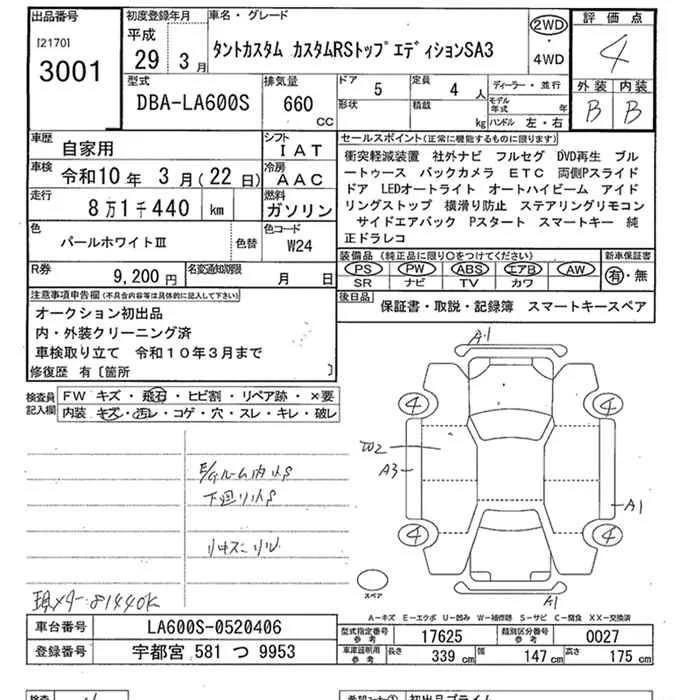 出品番号 初度登録年月 車名・グレード 2WD 評価点
[2170] 平成 ・ 4
3001 29年 3月 タントカスタム カスタムRSトップエディションSA3 4WD
型式 排気量 ドア 5 定員 4人 ディーラー・並行 外装 内装
DBA-LA600S 660 cc 形状 積載 kg モデル年式 年 B B
ハンドル 左・右
車歴 自家用 シフト IAT セールスポイント(正常に機能するものに限ります)
車検 令和10年 3月(22日) 冷房 AAC 衝突軽減装置 社外ナビ フルセグ DVD再生 ブル
走行 8万1千440 km 燃料 ガソリン ートゥース バックカメラ ETC 両側Pスライド
ドア LEDオートライト オートハイビーム アイド
リングストップ 横滑り防止 ステアリングリモコン
色 パールホワイトIII 色替 色コード W24 サイドエアバック Pスタート スマートキー 純
正ドラレコ
R券 9,200円 名変通知期限 月 日 装備品(純正品に限り○をつけてください) 新車保証書
PS PW ABS エアB AW 有・無
SR ナビ TV カワ
注意事項申告欄(不具合内容等は具体的に記入して下さい) 後日品 保証書・取説・記録簿 スマートキースペア
オークション初出品
内・外装クリーニング済
車検取り立て 令和10年3月まで
修復歴 有〔箇所 〕
検査員記入欄 FW キズ・飛石・ヒビ割・リペア跡・×要
内装 キズ・汚レ・コゲ・穴・スレ・キレ・破レ
A1
4 4
W2
E/gルーム内小S A3
下廻り小S
A1
4 4
スペア
A1
現メター81440K
A-キズ E-エクボ U-凹み W-補修跡 S-サビ C-腐食 XX-交換済
車台番号 LA600S-0520406 型式指定番号 参考 17625 類別区分番号 参考 0027
登録番号 宇都宮 581 つ 9953 車庫証明用 参考 長さ 339cm 幅 147cm 高さ 175cm
検査
初出品プライム